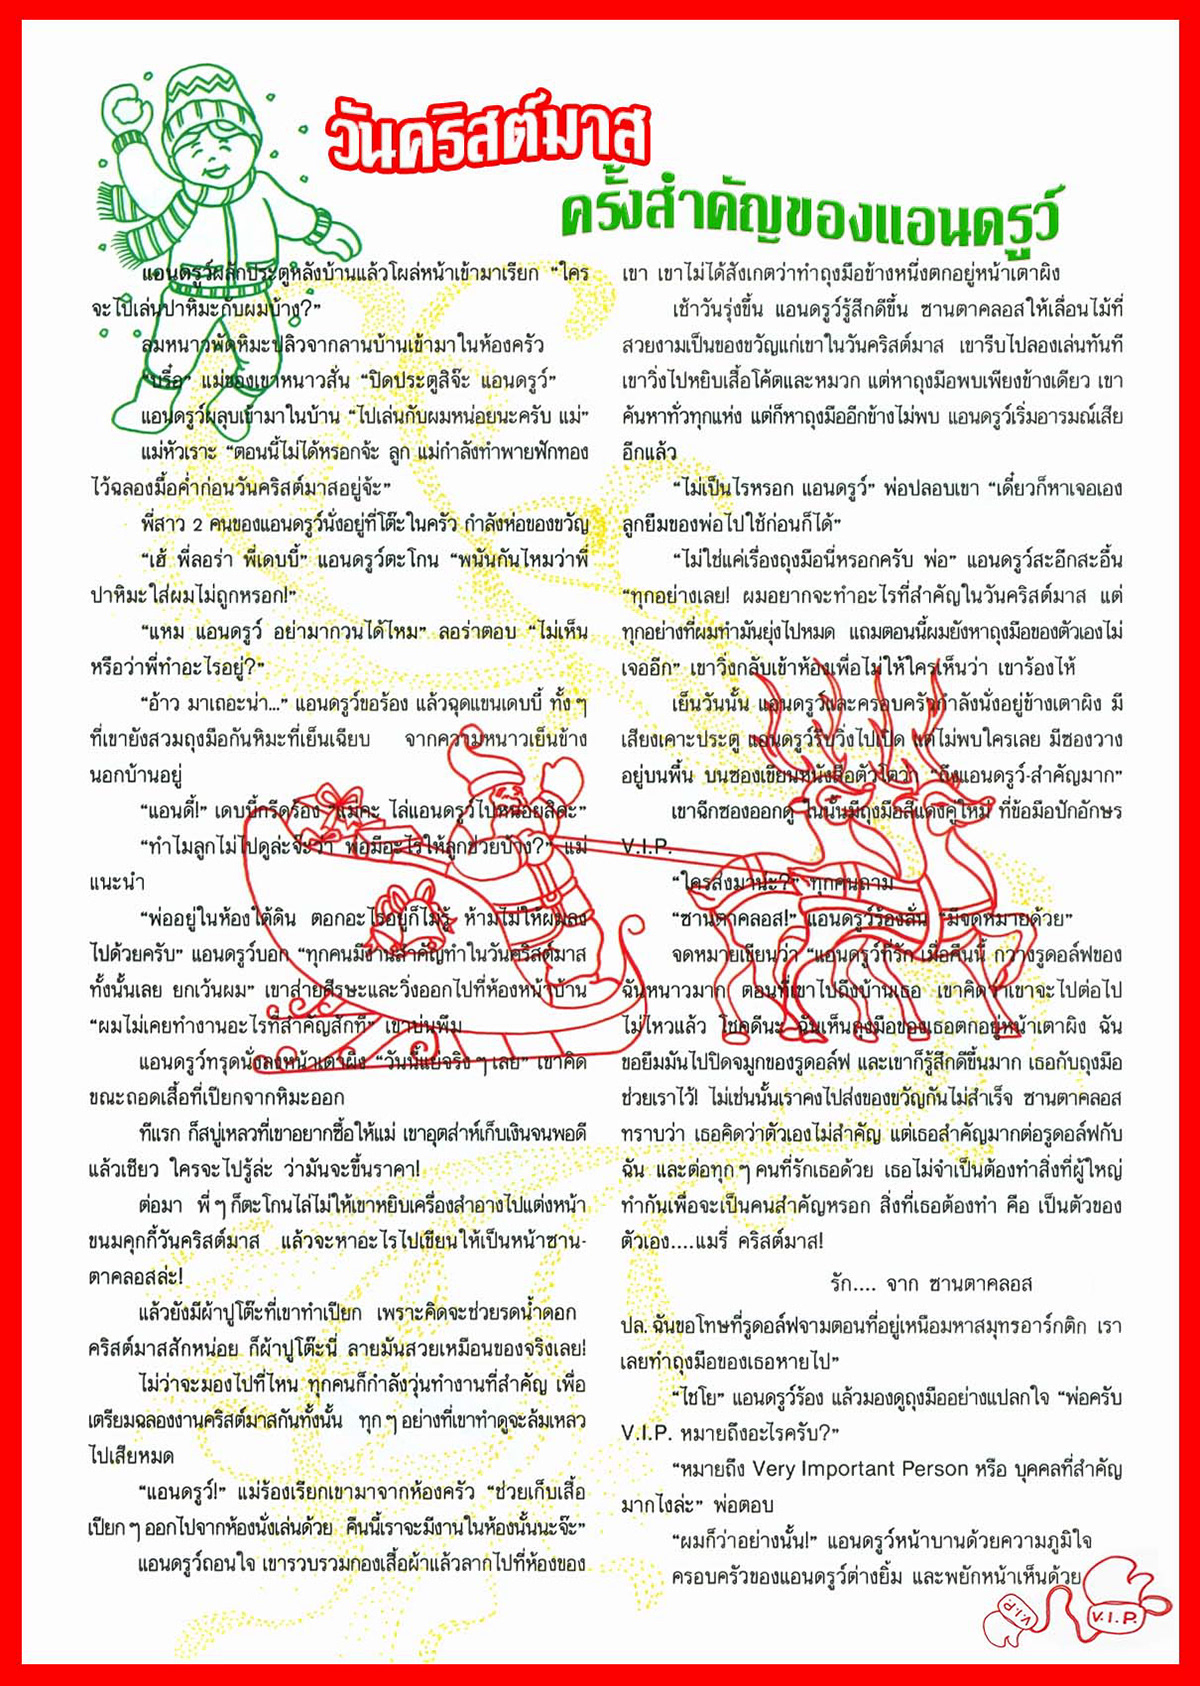 วันคริสต์มาส
ครั้งสำคัญของแอนดรูว์
แอนดรูว์ผลักประตูหลังบ้านแล้วโผล่หน้าเข้ามาเรียก “ใคร
จะไปเล่นปาหิมะกับผมบ้าง?”
ลมหนาวพัดหิมะปลิวจากลานบ้านเข้ามาในห้องครัว
“บรื๋อ” แม่ของเขาหนาวสั่น “ปิดประตูสิจ๊ะ แอนดรูว์”
แอนดรูว์ผลุบเข้ามาในบ้าน “ไปเล่นกับผมหน่อยนะครับ แม่”
แม่หัวเราะ “ตอนนี้ไม่ได้หรอกจ้ะ ลูก แม่กำลังทำพายฟักทอง
ไว้ฉลองมื้อค่ำก่อนวันคริสต์มาสอยู่จ้ะ”
พี่สาว 2 คนของแอนดรูว์นั่งอยู่ที่โต๊ะในครัว กำลังห่อของขวัญ
“เฮ้ พี่ลอร่า พี่เดบบี้” แอนดรูว์ตะโกน “พนันกันไหมว่าพี่
ปาหิมะใส่ผมไม่ถูกหรอก!”
“แหม แอนดรูว์ อย่ามากวนได้ไหม” ลอร่าตอบ “ไม่เห็น
หรือว่าพี่ทำอะไรอยู่?”
“อ้าว มาเถอะน่า...” แอนดรูว์ขอร้อง แล้วฉุดแขนเดบบี้ ทั้ง ๆ
ที่เขายังสวมถุงมือกันหิมะที่เย็นเฉียบ จากความหนาวเย็นข้าง
นอกบ้านอยู่
“แอนดี้!” เดบบี้กรีดร้อง “แม่คะ ไล่แอนดรูว์ไปหน่อยสิคะ”
“ทำไมลูกไม่ไปดูล่ะจ๊ะว่า พ่อมีอะไรให้ลูกช่วยบ้าง?” แม่
แนะนำ
“พ่ออยู่ในห้องใต้ดิน ตอกอะไรอยู่ก็ไม่รู้ ห้ามไม่ให้ผมลง
ไปด้วยครับ” แอนดรูว์บอก “ทุกคนมีงานสำคัญทำในวันคริสต์มาส
ทั้งนั้นเลย ยกเว้นผม” เขาส่ายศีรษะและวิ่งออกไปที่ห้องหน้าบ้าน
“ผมไม่เคยทำงานอะไรที่สำคัญสักที” เขาบ่นพึม
แอนดรูว์ทรุดนั่งลงหน้าเตาผิง “วันนี้แย่จริง ๆ เลย” เขาคิด
ขณะถอดเสื้อที่เปียกจากหิมะออก
ทีแรก ก็สบู่เหลวที่เขาอยากซื้อให้แม่ เขาอุตส่าห์เก็บเงินจนพอดี
แล้วเชียว ใครจะไปรู้ล่ะ ว่ามันจะขึ้นราคา!
ต่อมา พี่ ๆ ก็ตะโกนไล่ไม่ให้เขาหยิบเครื่องสำอางไปแต่งหน้า
ขนมคุกกี้วันคริสต์มาส แล้วจะหาอะไรไปเขียนให้เป็นหน้าซาน-
ตาคลอสล่ะ!
แล้วยังมีผ้าปูโต๊ะที่เขาทำเปียก เพราะคิดจะช่วยรดน้ำดอก
คริสต์มาสสักหน่อย ก็ผ้าปูโต๊ะนี่ ลายมันสวยเหมือนของจริงเลย!
ไม่ว่าจะมองไปที่ไหน ทุกคนก็กำลังวุ่นทำงานที่สำคัญ เพื่อ
เตรียมฉลองงานคริสต์มาสกันทั้งนั้น ทุก ๆ อย่างที่เขาทำดูจะล้มเหลว
ไปเสียหมด
“แอนดรูว์!” แม่ร้องเรียกเขามาจากห้องครัว “ช่วยเก็บเสื้อ
เปียก ๆ ออกไปจากห้องนั่งเล่นด้วย คืนนี้เราจะมีงานในห้องนั้นนะจ๊ะ”
แอนดรูว์ถอนใจ เขารวบรวมกองเสื้อผ้าแล้วลากไปที่ห้องของ
เขา เขาไม่ได้สังเกตว่าทำถุงมือข้างหนึ่งตกอยู่หน้าเตาผิง
เช้าวันรุ่งขึ้น แอนดรูว์รู้สึกดีขึ้น ซานตาคลอสให้เลื่อนไม้ที่
สวยงามเป็นของขวัญแก่เขาในวันคริสต์มาส เขารีบไปลองเล่นทันที
เขาวิ่งไปหยิบเสื้อโค้ตและหมวก แต่หาถุงมือพบเพียงข้างเดียว เขา
ค้นหาทั่วทุกแห่ง แต่ก็หาถุงมืออีกข้างไม่พบ แอนดรูว์เริ่มอารมณ์เสีย
อีกแล้ว
“ไม่เป็นไรหรอก แอนดรูว์” พ่อปลอบเขา “เดี๋ยวก็หาเจอเอง
ลูกยืมของพ่อไปใช้ก่อนก็ได้”
“ไม่ใช่แค่เรื่องถุงมือนี่หรอกครับ พ่อ” แอนดรูว์สะอึกสะอื้น
“ทุกอย่างเลย! ผมอยากจะทำอะไรที่สำคัญในวันคริสต์มาส แต่
ทุกอย่างที่ผมทำมันยุ่งไปหมด แถมตอนนี้ผมยังหาถุงมือของตัวเองไม่
เจออีก” เขาวิ่งกลับเข้าห้องเพื่อไม่ให้ใครเห็นว่า เขาร้องไห้
เย็นวันนั้น แอนดรูว์และครอบครัวกำลังนั่งอยู่ข้างเตาผิง มี
เสียงเคาะประตู แอนดรูว์รีบวิ่งไปเปิด แต่ไม่พบใครเลย มีซองวาง
อยู่บนพื้น บนซองเขียนหนังสือตัวโตว่า “ถึงแอนดรูว์-สำคัญมาก”
เขาฉีกซองออกดู ในนั้นมีถุงมือสีแดงคู่ใหม่ ที่ข้อมือปักอักษร
V.I.P.
“ใครส่งมาน่ะ?” ทุกคนถาม
“ซานตาคลอส!” แอนดรูว์ร้องลั่น “มีจดหมายด้วย”
จดหมายเขียนว่า “แอนดรูว์ที่รัก เมื่อคืนนี้ กวางรูดอล์ฟของ
ฉันหนาวมาก ตอนที่เขาไปถึงบ้านเธอ เขาคิดว่าเขาจะไปต่อไป
ไม่ไหวแล้ว โชคดีนะ ฉันเห็นถุงมือของเธอตกอยู่หน้าเตาผิง ฉัน
ขอยืมมันไปปิดจมูกของรูดอล์ฟ และเขาก็รู้สึกดีขึ้นมาก เธอกับถุงมือ
ช่วยเราไว้! ไม่เช่นนั้นเราคงไปส่งของขวัญกันไม่สำเร็จ ซานตาคลอส
ทราบว่า เธอคิดว่าตัวเองไม่สำคัญ แต่เธอสำคัญมากต่อรูดอล์ฟกับ
ฉัน และต่อทุก ๆ คนที่รักเธอด้วย เธอไม่จำเป็นต้องทำสิ่งที่ผู้ใหญ่
ทำกันเพื่อจะเป็นคนสำคัญหรอก สิ่งที่เธอต้องทำ คือ เป็นตัวของ
ตัวเอง....แมรี่ คริสต์มาส!
รัก.... จาก ซานตาคลอส
ปล. ฉันขอโทษที่รูดอล์ฟจามตอนที่อยู่เหนือมหาสมุทรอาร์กติก เรา
เลยทำถุงมือของเธอหายไป”
“ไชโย” แอนดรูว์ร้อง แล้วมองดูถุงมืออย่างแปลกใจ “พ่อครับ
V.I.P. หมายถึงอะไรครับ?”
“หมายถึง Very Important Person หรือ บุคคลที่สำคัญ
มากไงล่ะ” พ่อตอบ
“ผมก็ว่าอย่างนั้น!” แอนดรูว์หน้าบานด้วยความภูมิใจ
ครอบครัวของแอนดรูว์ต่างยิ้ม และพยักหน้าเห็นด้วย
V.I.P.
V.I.P.